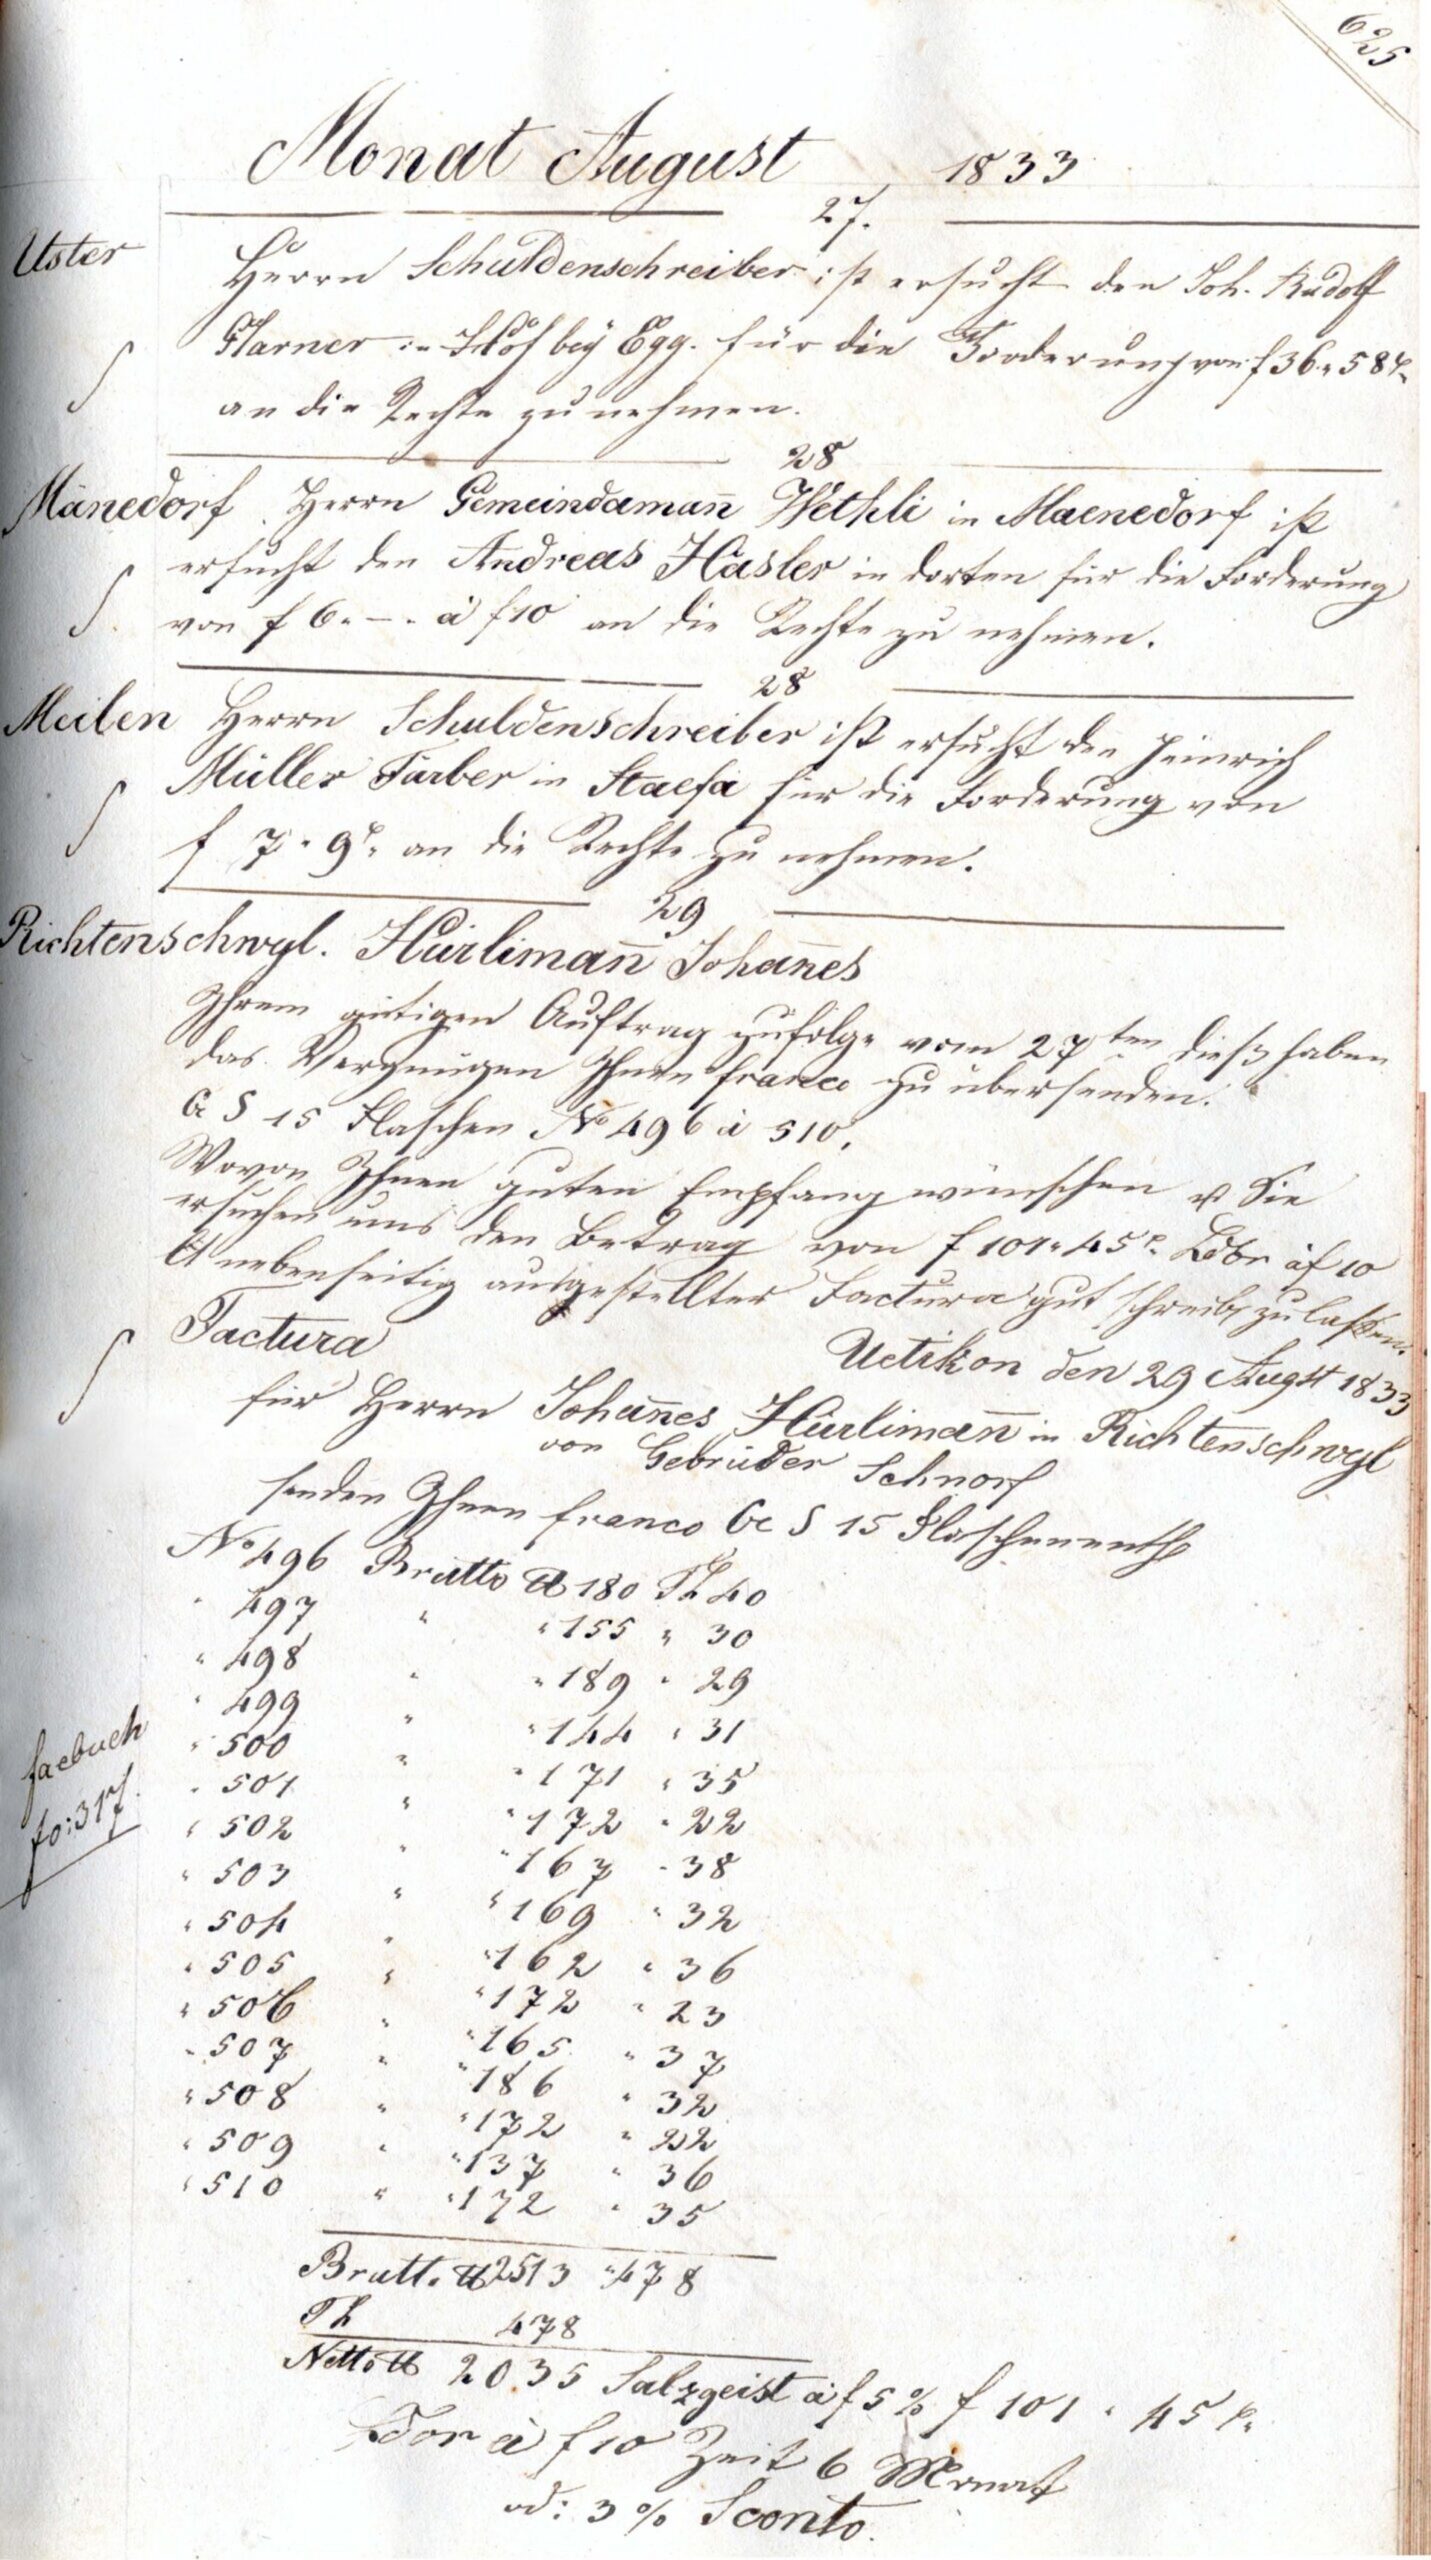 625
Monat August 1833
27.
Uster
Herrn Schuldenschreiber ist ersucht den Joh. Rudolf
Pfarner in bey Egg. für die Forderung von f 36 " 58 ß
an die Rechte zu nehmen.
28
Mänedorf Herrn Gemeindamañ Wethli in Maenedorf ist
ersucht den Andreas Hasler in dorten für die Forderung
von f 6 " – " à f 10 an die Rechte zu nehmen.
28
Meilen Herrn Schuldenschreiber ist ersucht den Heinrich
Müller Färber in Staefa für die Forderung von
f 7 " 9 ß an die Rechte zu nehmen.
29
Richtenschwyl. Hürlimañ Johañes
Ihrem gütigen Auftrag zufolge vom 27ten dieß haben
das Vergnügen Ihnen franco zu übersenden.
G S 15 Flaschen No 496 à 510.
Wovon Ihnen guten Empfang wünschen u Sie
ersuchen uns den Betrag von f 101 " 45 ß Ldor à f 10
lt nebenseitig ausgestellter Factura gut schreiben zu laßen.
Factura
Uetikon den 29 Augst 1833
für Herrn Johañes Hürlimañ in Richtenschwyl
von Gebrüder Schnorf
senden Ihnen franco G S 15 Flaschen enth
No 496 Brutto ℔ 180 Th 40
" 497 " " 155 " 30
" 498 " " 189 " 29
" 499 " " 144 " 31
" 500 " " 171 " 35
" 501 " " 172 " 22
" 502 " " 167 " 38
" 503 " " 169 " 32
" 504 " " 162 " 36
" 505 " " 172 " 23
" 506 " " 165 " 37
" 507 " " 186 " 32
" 508 " " 172 " 22
" 509 " " 137 " 36
" 510 " " 172 " 35
facbuch
fo: 317.
Brutt. ℔ 2513 " 478
Th 478
Netto ℔ 2035 Salzgeist à f 5 % f 101 " 45 ß
Ldor à f 10 Zeit 6 Monat
od: 3 % Sconto.